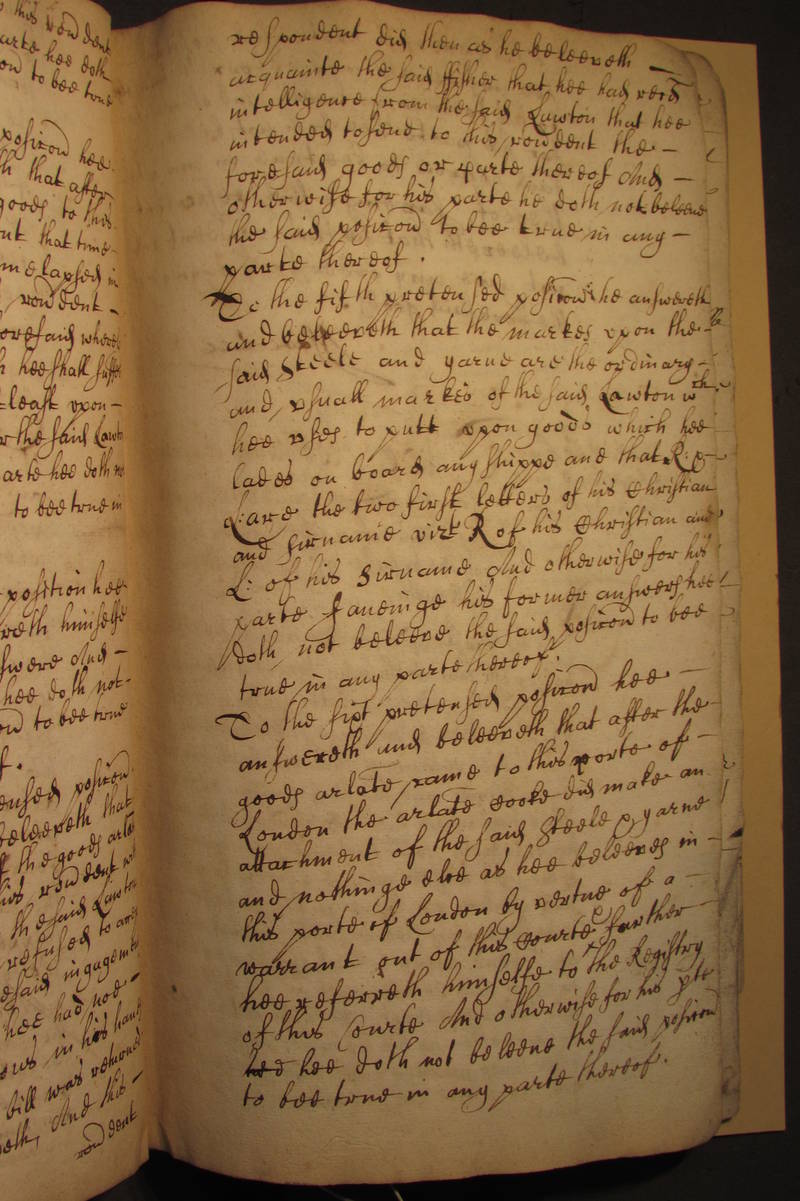 this rondent
parte hee doth
on to bee true
posicon hee
th that after
goods to this
nt that time
me elapsed in
rondent
foresaid where
h hee shall suffer
least upon
r the said Lawton
arte hee doth not
to bee true in
position hee
reth himselfe
swere And
hee doth not
on to bee true
f.
ensed posicon
beleeveth that
the goods arlate
his rondent
the said Lawton
refused to
esaid ingagement
hee had noe
in his hands
bill was returned
eth, And this
rondent
respondent did then as he beleeveth
acquainte the said ffisher that hee had recd
intelligence from the said Lawton that hee
intended to send to this rondent the
foresaid goods or parte thereof And
otherwise for his parte he doth not beleeve
the said posicon to bee true in any
parte thereof.
To the fifth pretensed posicon he answereth
and beleeveth that the markes upon the
said Steele and yarne are the ordinary
and usuall markes of the said Lawton wch
hee uses to putt upon goods which hee
lades on board any shippe and that R: &
L: are the two first letters of his Christian
and sirname vizt R of his Christian and
L: of his Sirname And otherwise for his
parte saveinge his former answers hee
doth not beleeve the said posicon to bee
true in any parte thereof.
To the sixt pretensed posicon hee
answereth and beleeveth that after the
goods arlate came to this porte of
London the arlate Cooke did make an
attachment of the said Steele & yarne
and nothinge else as hee beleeves in
this porte of London by vertue of a
warrant out of this Courte further
hee referreth himselfe to the Registry
of this Courte And otherwise for his pte
hee hee doth not beleeve the said posicon
to bee true in any parte thereof.